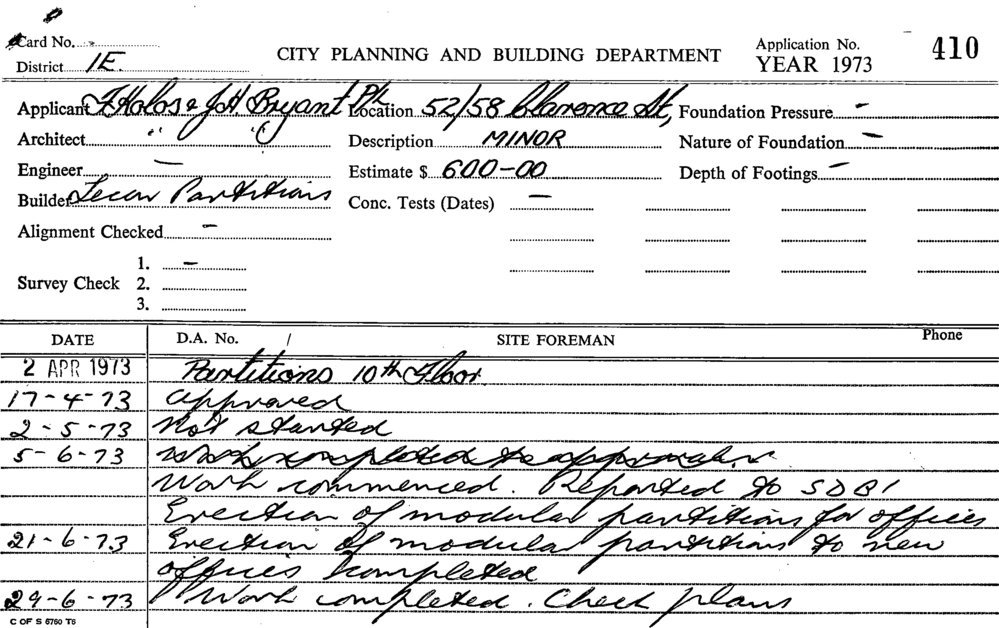 Card No.
CITY PLANNING AND BUILDING DEPARTMENT
Application No. 410
District 1E.
YEAR 1973
Applicant & J H Bryant P/L Location 52/58 Clarence St, Foundation Pressure -
Architect " " Description MINOR Nature of Foundation -
Engineer - Estimate $ 600-00 Depth of Footings -
Builder Partitions Conc. Tests (Dates) -
Alignment Checked -
Survey Check 1. -
2.
3.
DATE D.A. No. / SITE FOREMAN Phone
2 APR 1973 Partitions 10th Floor
17-4-73 Approved
2-5-73 Not started
5-6-73 Work completed to approval
Work commenced. Reported to SDBI
Erection of modular partitions for offices
21-6-73 Erection of modular partitions to new
offices completed
29-6-73 Work completed. Check plans
C OF S 6760 T6